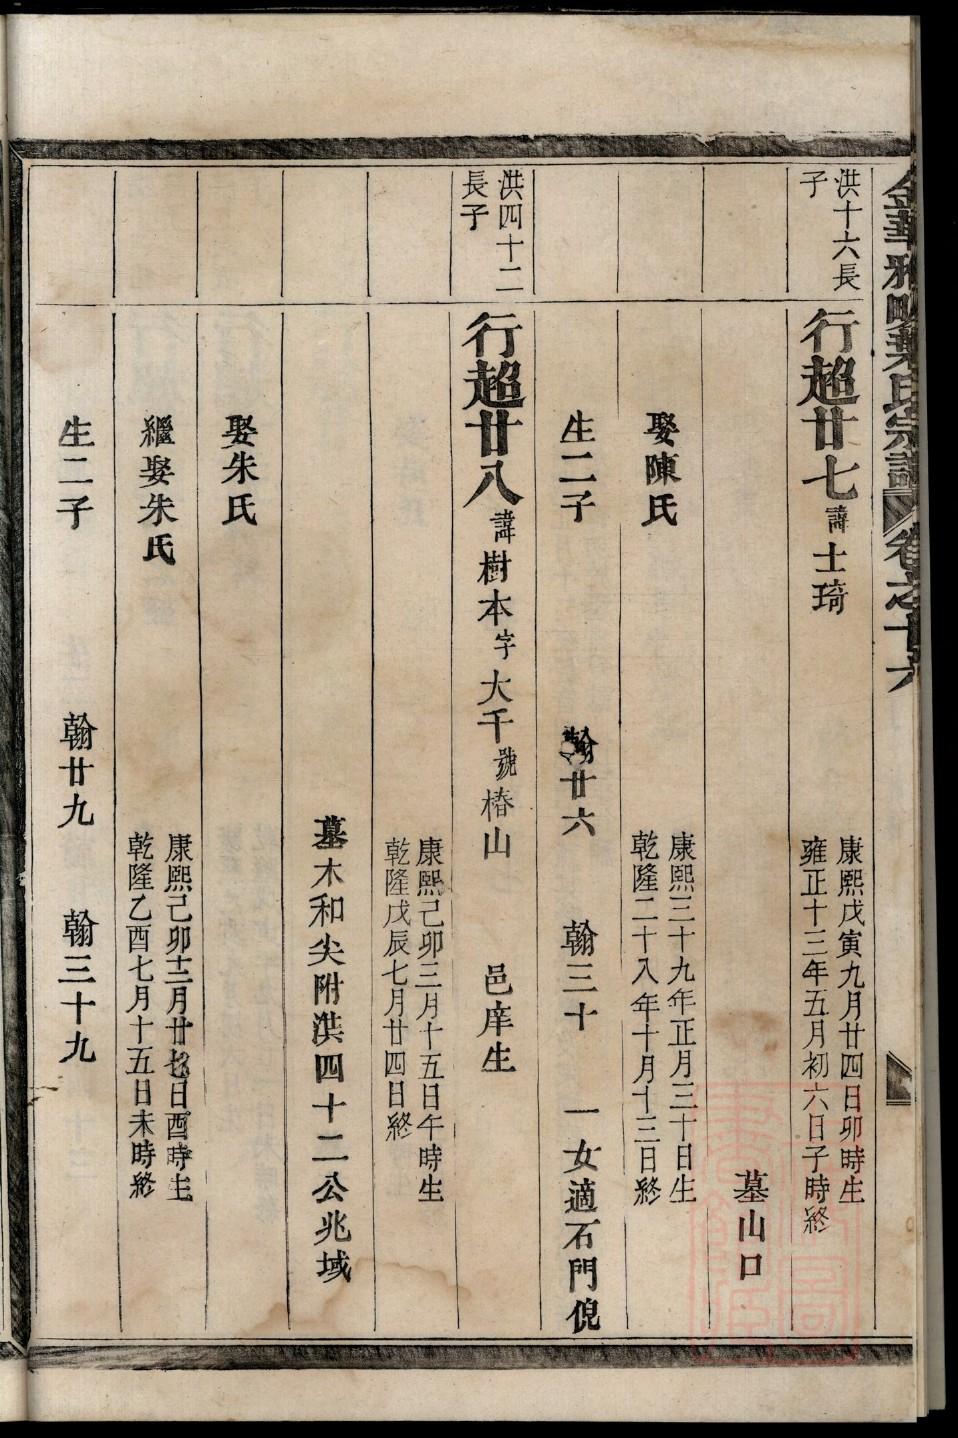 金華雅畈葉氏宗譜 卷之十六
洪十六長子
行趨廿七 諱士琦
康熙戊寅九月廿四日卯時生
雍正十三年五月初六日子時終
墓山口
娶陳氏
康熙三十九年正月三十日生
乾隆二十八年十月十三日終
生二子 翰廿六 翰三十 一女適石門倪
洪四十二長子
行趨廿八 諱樹本字大千號椿山 邑庠生
康熙己卯三月十五日午時生
乾隆戊辰七月廿四日終
墓木和尖附洪四十二公兆域
娶朱氏
繼娶朱氏
康熙己卯十二月廿七日酉時生
乾隆乙酉七月十五日未時終
生二子 翰廿九 翰三十九